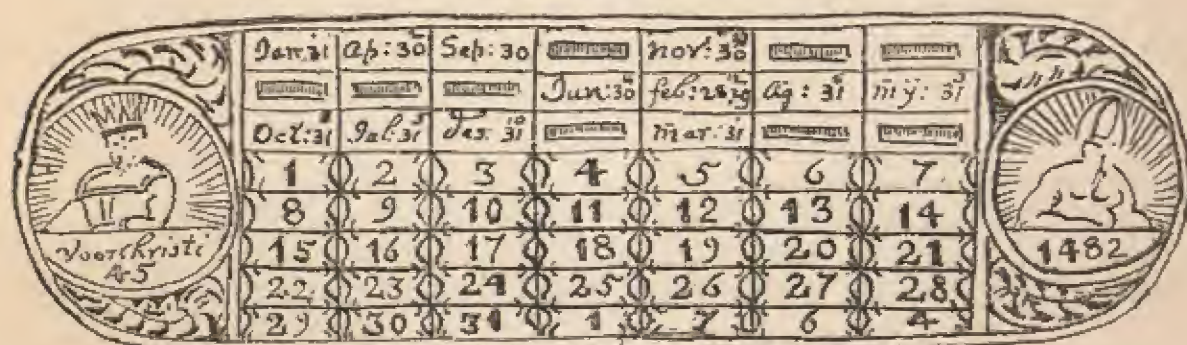 Voor Christi
45
Jan: 31 Ap: 30 Sep: 30 Nov: 30
Jun: 30 feb: 28,29 Ag: 31 mÿ: 31
Oct: 31 Jul: 31 Des: 31 mar: 31
1 2 3 4 5 6 7
8 9 10 11 12 13 14
15 16 17 18 19 20 21
22 23 24 25 26 27 28
29 30 31 1 7 6 4
1482